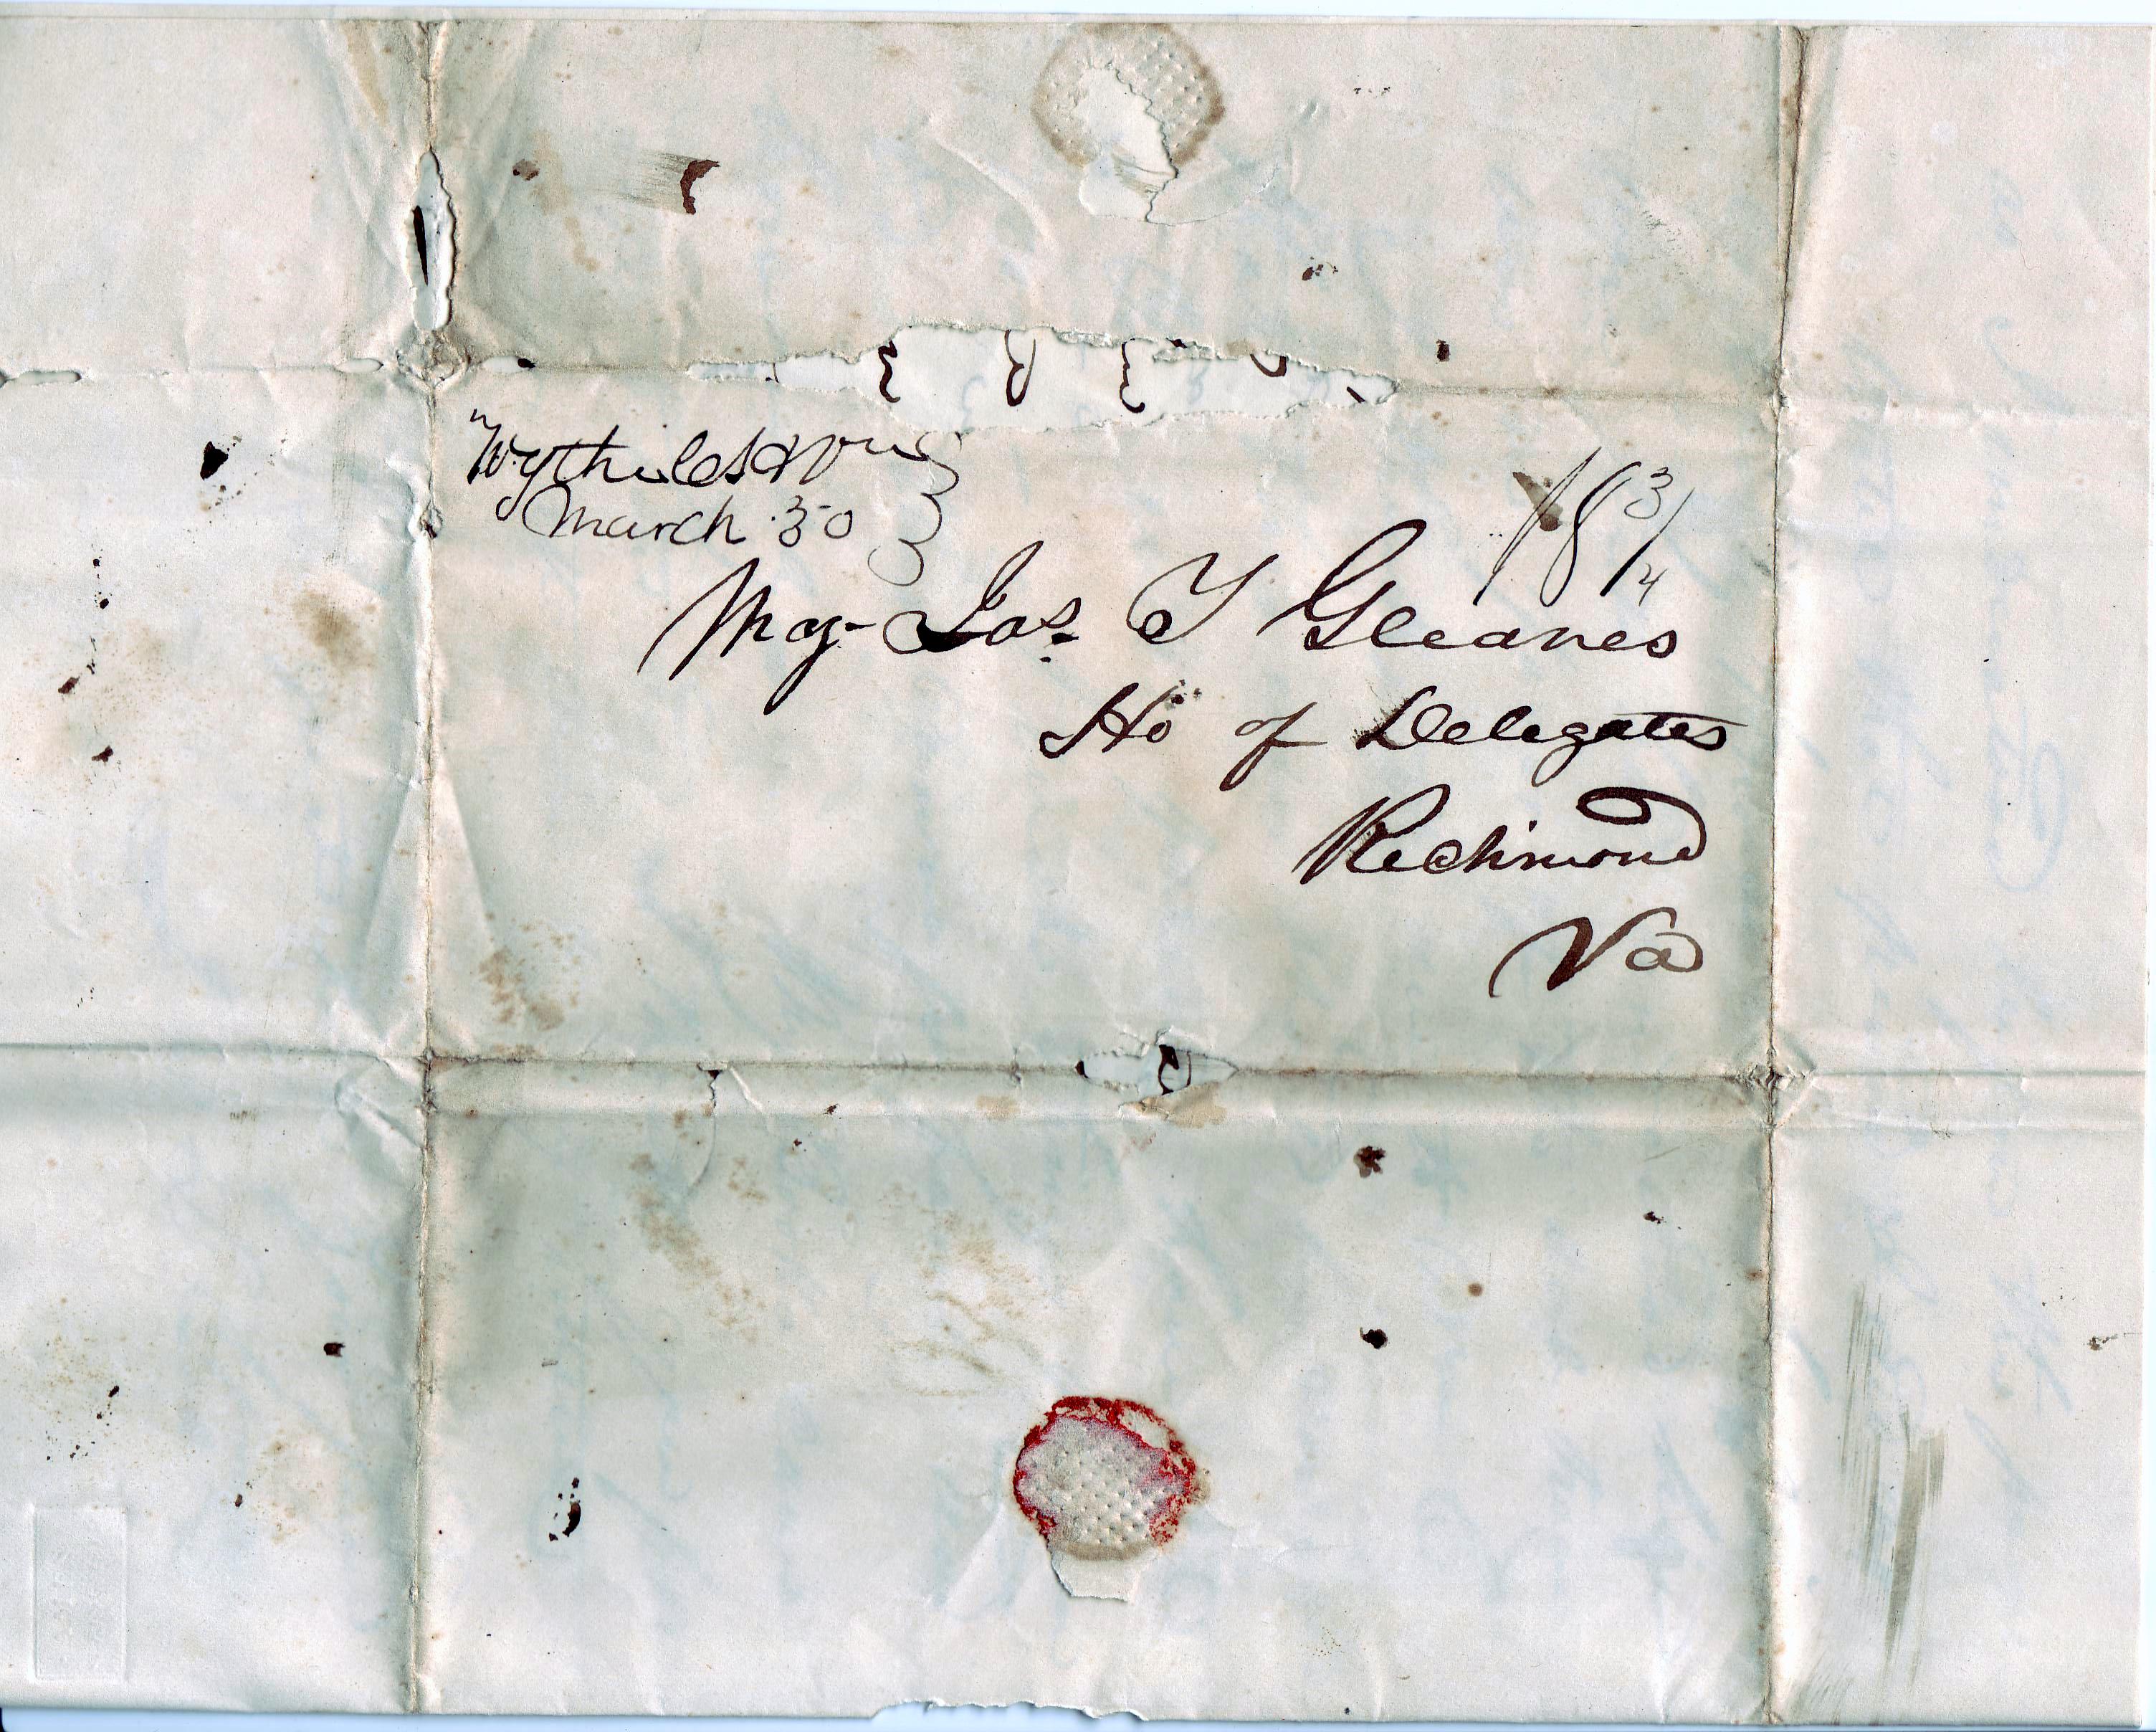 March 30
18 3/4
Maj. Jas. T Gleanes
Ho of Delegates
Richmond
Va